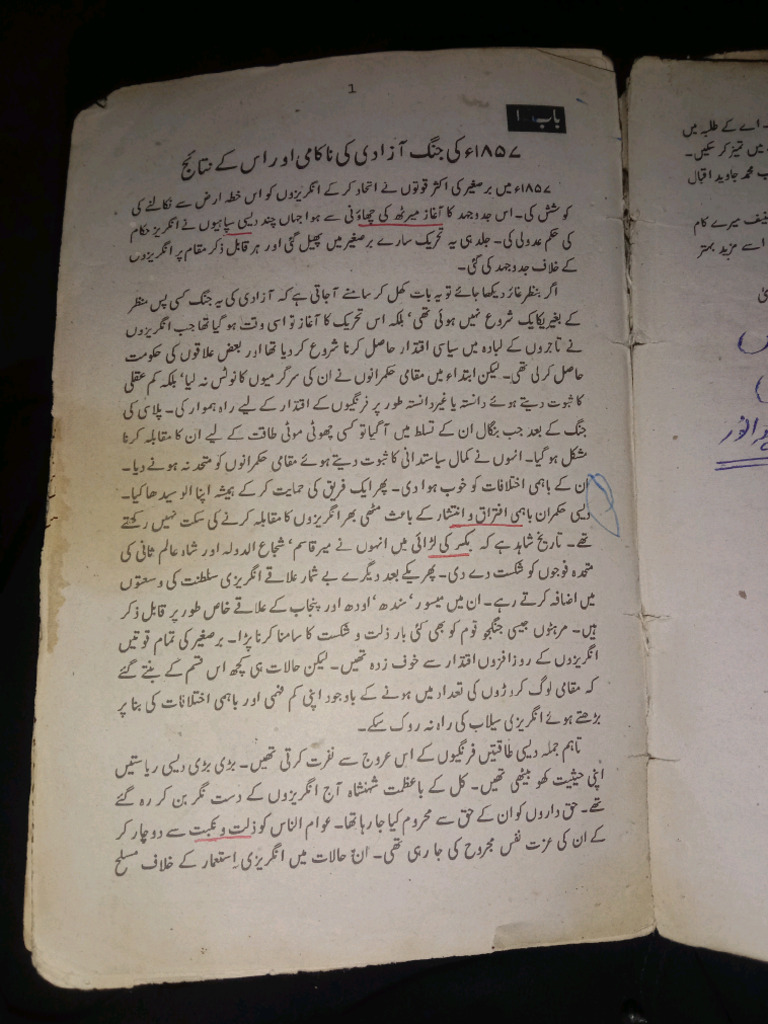 1
باب ۔ ۱
۱۸۵۷ء کی جنگ آزادی کی ناکامی اور اس کے نتائج
۱۸۵۷ء میں برصغیر کی اکثر قوتوں نے اتحاد کر کے انگریزوں کو اس خطہ ارض سے نکالنے کی
کوشش کی۔ اس جدوجہد کا آغاز میرٹھ کی چھاؤنی سے ہوا جہاں چند دیسی سپاہیوں نے انگریز حکام
کی حکم عدولی کی۔ جلد ہی یہ تحریک سارے برصغیر میں پھیل گئی اور ہر قابل ذکر مقام پر انگریزوں
کے خلاف جدوجہد کی گئی۔
اگر بنظر غائر دیکھا جائے تو یہ بات کھل کر سامنے آجاتی ہے کہ آزادی کی یہ جنگ کسی پس منظر
کے بغیر یکایک شروع نہیں ہوئی تھی، بلکہ اس تحریک کا آغاز تو اسی وقت ہو گیا تھا جب انگریزوں
نے تاجروں کے لبادہ میں سیاسی اقتدار حاصل کرنا شروع کر دیا تھا اور بعض علاقوں کی حکومت
حاصل کر لی تھی۔ لیکن ابتداء میں مقامی حکمرانوں نے ان کی سرگرمیوں کا نوٹس نہ لیا، بلکہ کم عقلی
کا ثبوت دیتے ہوئے دانستہ یا غیر دانستہ طور پر فرنگیوں کے اقتدار کے لیے راہ ہموار کی۔ پلاسی کی
جنگ کے بعد جب بنگال ان کے تسلط میں آگیا تو کسی چھوٹی موٹی طاقت کے لیے ان کا مقابلہ کرنا
مشکل ہو گیا۔ انہوں نے کمال سیاستدانی کا ثبوت دیتے ہوئے مقامی حکمرانوں کو متحد نہ ہونے دیا۔
ان کے باہمی اختلافات کو خوب ہوا دی۔ پھر ایک فریق کی حمایت کر کے ہمیشہ اپنا الو سیدھا کیا۔
دیسی حکمران باہمی افتراق و انتشار کے باعث مٹھی بھر انگریزوں کا مقابلہ کرنے کی سکت نہیں رکھتے
تھے۔ تاریخ شاہد ہے کہ بکسر کی لڑائی میں انہوں نے میر قاسم، شجاع الدولہ اور شاہ عالم ثانی کی
متحدہ فوجوں کو شکست دے دی۔ پھر یکے بعد دیگرے بے شمار علاقے انگریزی سلطنت کی وسعتوں
میں اضافہ کرتے رہے۔ ان میں میسور، سندھ، اودھ اور پنجاب کے علاقے خاص طور پر قابل ذکر
ہیں۔ مرہٹوں جیسی جنگجو قوم کو بھی کئی بار ذلت و شکست کا سامنا کرنا پڑا۔ برصغیر کی تمام قوتیں
انگریزوں کے روز افزوں اقتدار سے خوف زدہ تھیں۔ لیکن حالات ہی کچھ اس قسم کے بنتے گئے
کہ مقامی لوگ کروڑوں کی تعداد میں ہونے کے باوجود اپنی کم فہمی اور باہمی اختلافات کی بنا پر
بڑھتے ہوئے انگریزی سیلاب کی راہ نہ روک سکے۔
تاہم جملہ دیسی طاقتیں فرنگیوں کے اس عروج سے نفرت کرتی تھیں۔ بڑی بڑی دیسی ریاستیں
اپنی حیثیت کھو بیٹھی تھیں۔ کل کے باعظمت شہنشاہ آج انگریزوں کے دست نگر بن کر رہ گئے
تھے۔ حق داروں کو ان کے حق سے محروم کیا جا رہا تھا۔ عوام الناس کو ذلت و نکبت سے دوچار کر
کے ان کی عزت نفس مجروح کی جا رہی تھی۔ ان حالات میں انگریزی استعمار کے خلاف مسلح
۔ اے کے طلبہ میں
میں تمیز کر سکیں۔
ب محمد جاوید اقبال
میرے کام
اسے مزید بہتر
انور